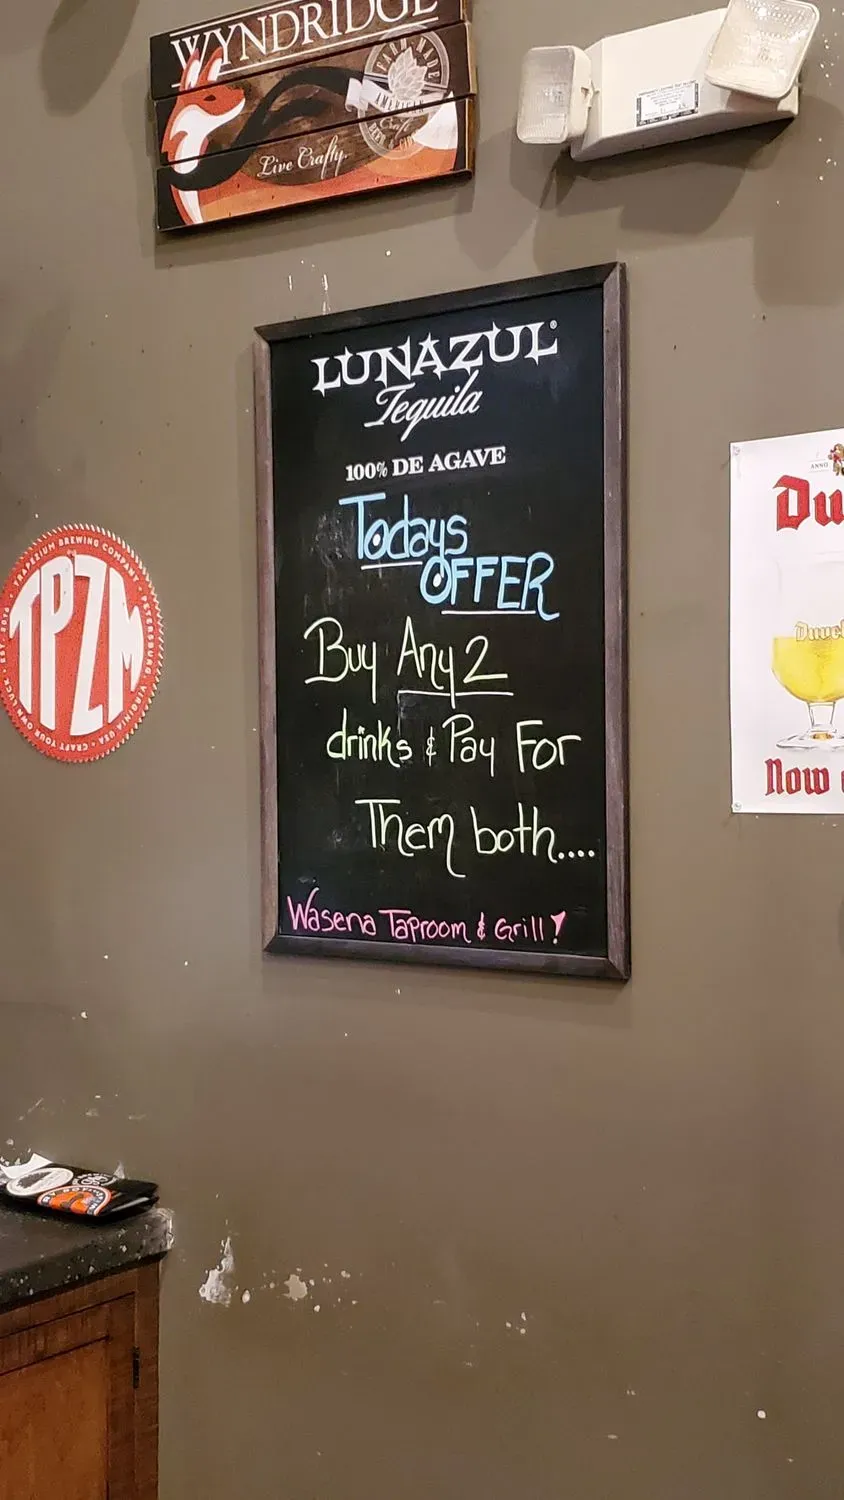 WYNDRIDGE
FARM MADE
AMERICAN
Craft
BEER &
Live Crafty.
LUNAZUL®
Tequila
100% DE AGAVE
Todays
OFFER
Buy Any 2
drinks & Pay For
Them both....
Wasena Taproom & Grill!
TRAPEZIUM BREWING COMPANY
PETERSBURG VIRGINIA USA
CRAFT YOUR OWN LUCK
EST 2016
TPZM
ANNO
Duv
Duvel
Now